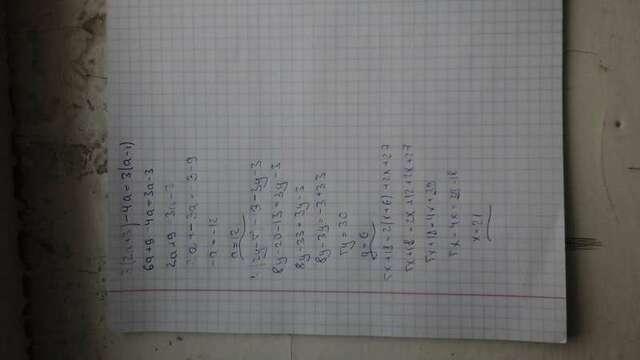 3(2a+3)-4a=3(a-1)
6a+9-4a=3a-3
2a+9=3a-3
2a-3a=-3-9
-a=-12
a=12
8y-20-13=3y-3
8y-33=3y-3
8y-3y=-3+33
5y=30
y=6
5x+18=2(x+6)+2x+27
5x+18=2x+12+2x+27
5x+18=4x+39
5x-4x=39-18
x=21